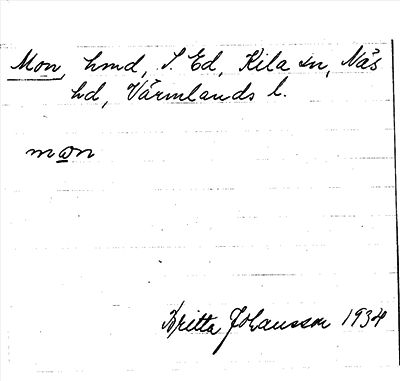 Mon, hmd, S. Ed, Kila sn, Näs
hd, Värmlands l.
mɷn
Britta Johansson 1934